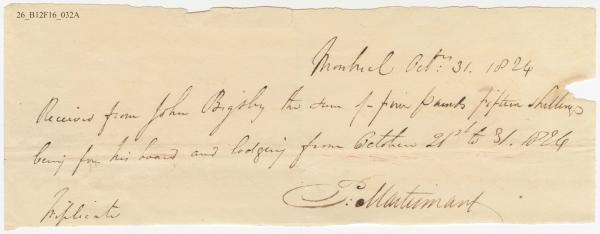 26_B12F16_032A
Montreal Octr: 31. 1824
Received from John Bigsby the sum of four pounds fifteen shillings
being for his board and lodging from October 21st to 31. 1824
P: Martinant
Triplicate